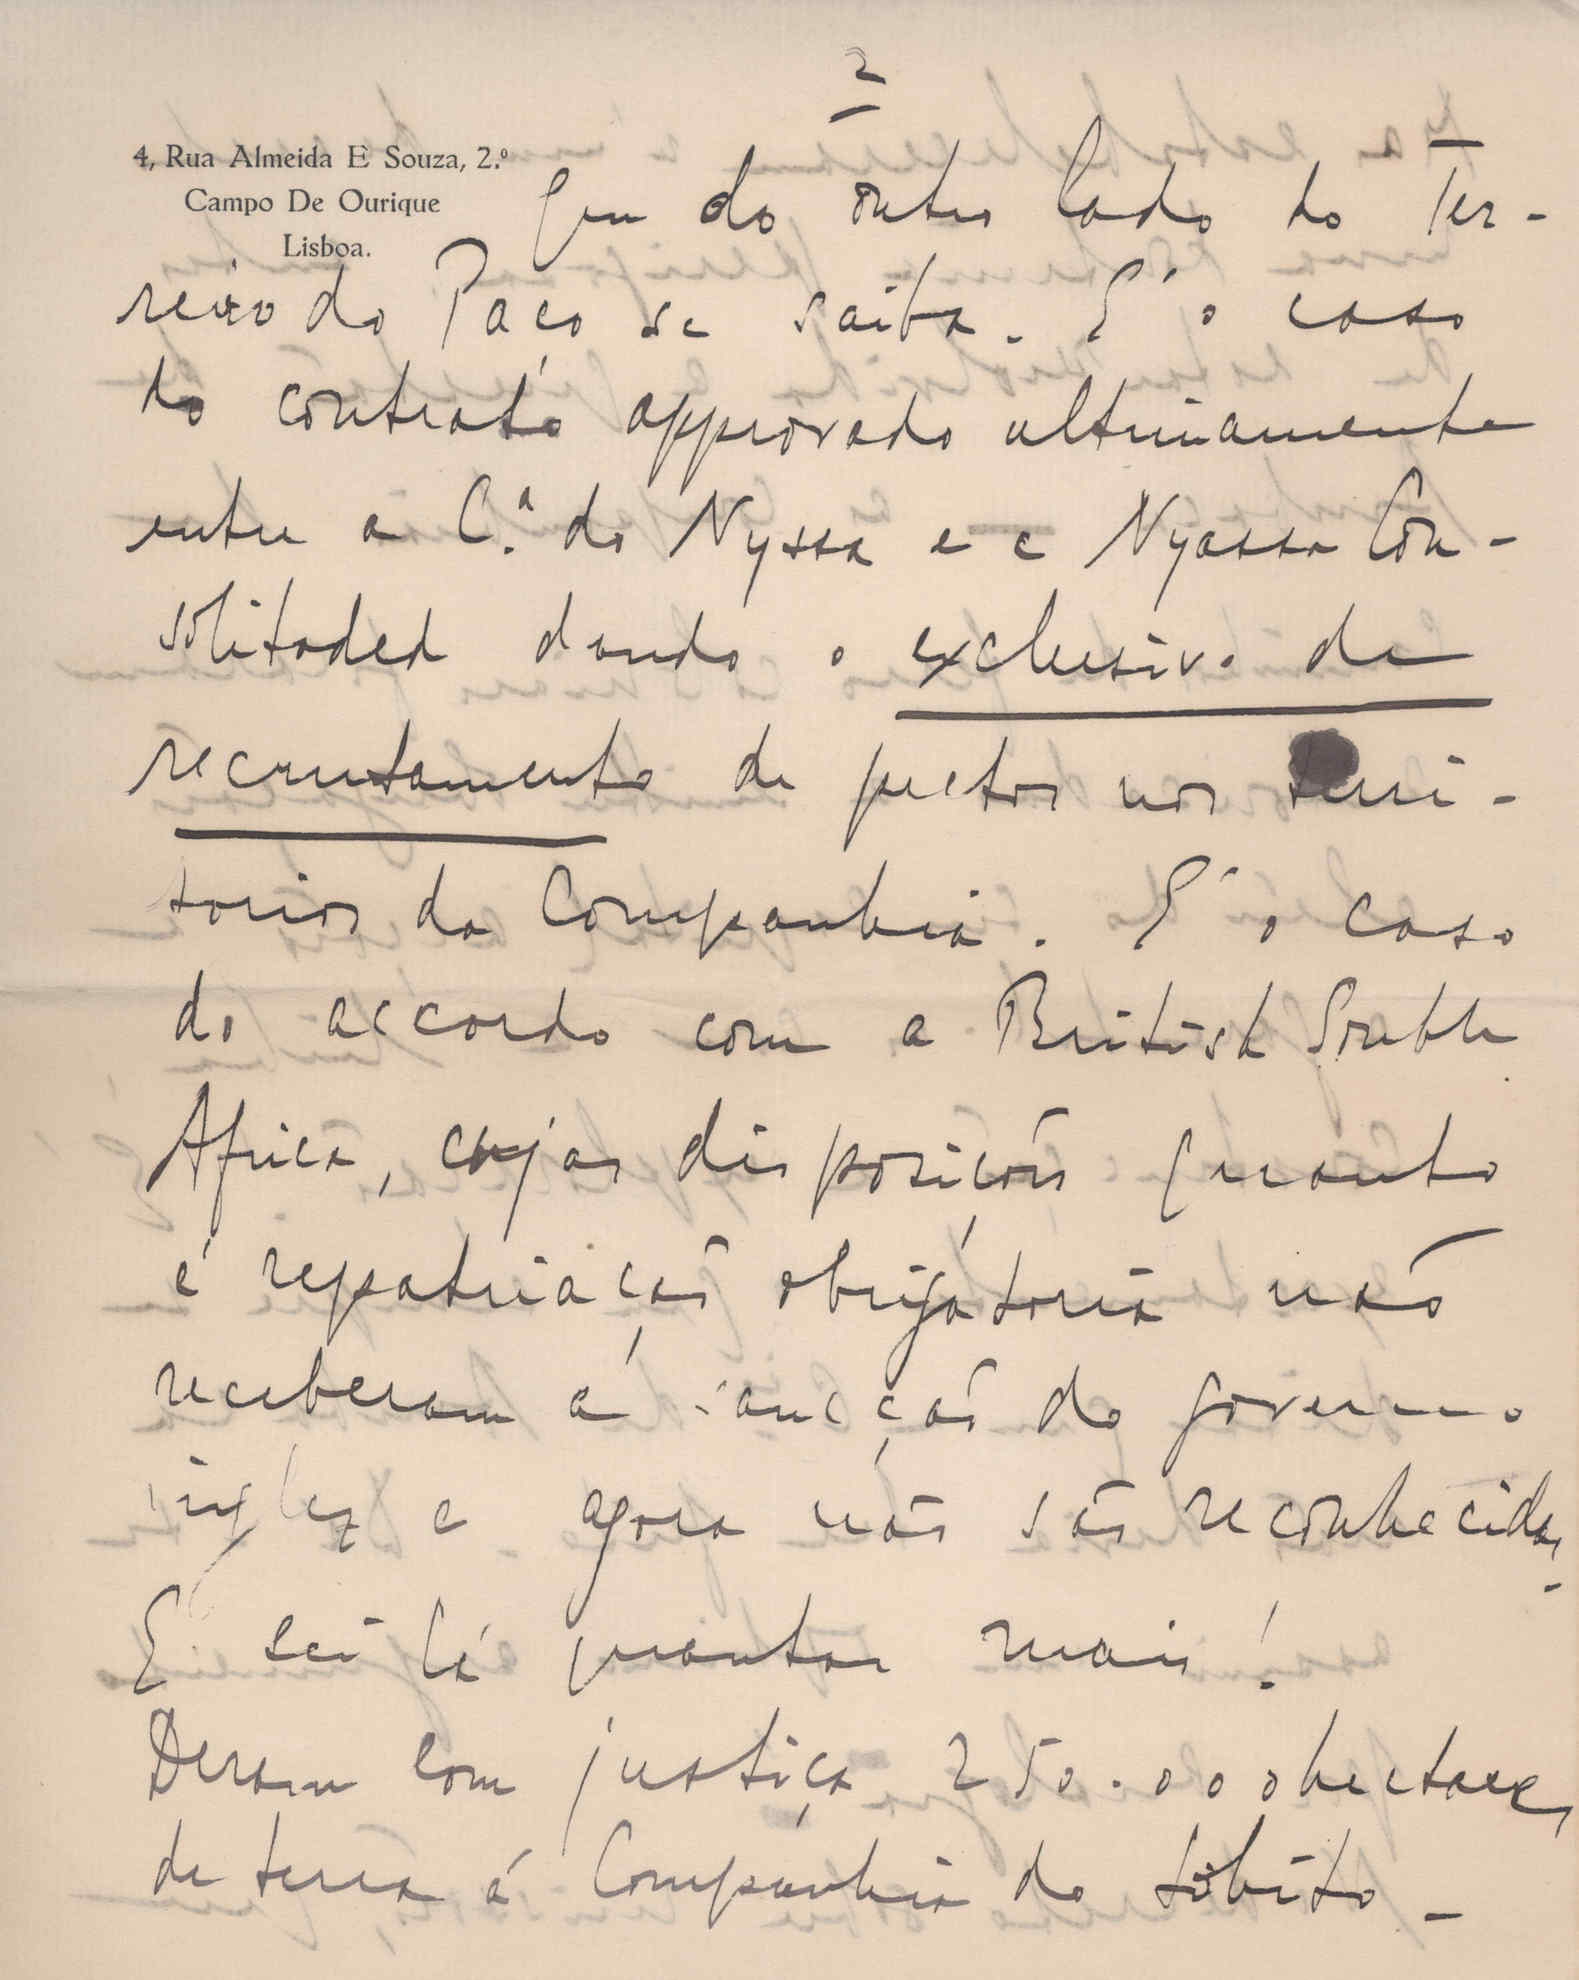 2
4, Rua Almeida E Souza, 2.º
Campo De Ourique
Lisboa.
que do outro lado do Ter-
reiro do Paço se saiba. E' o caso
do contrato approvado ultimamente
entre a C.ª do Nyssa e a Nyassa Con-
solitaded dando o exclusivo de
recrutamento de pretos nos terri-
torios da Companhia. E' o caso
do accordo com a British South
Africa, cujas disposições quanto
á repatriação obrigatoria não
receberam a sancção do governo
inglez e agora não são reconhecidas.
E sei lá quantos mais!
Deram com justiça 250.000 hectares
de terra á Companhia do Lobito -